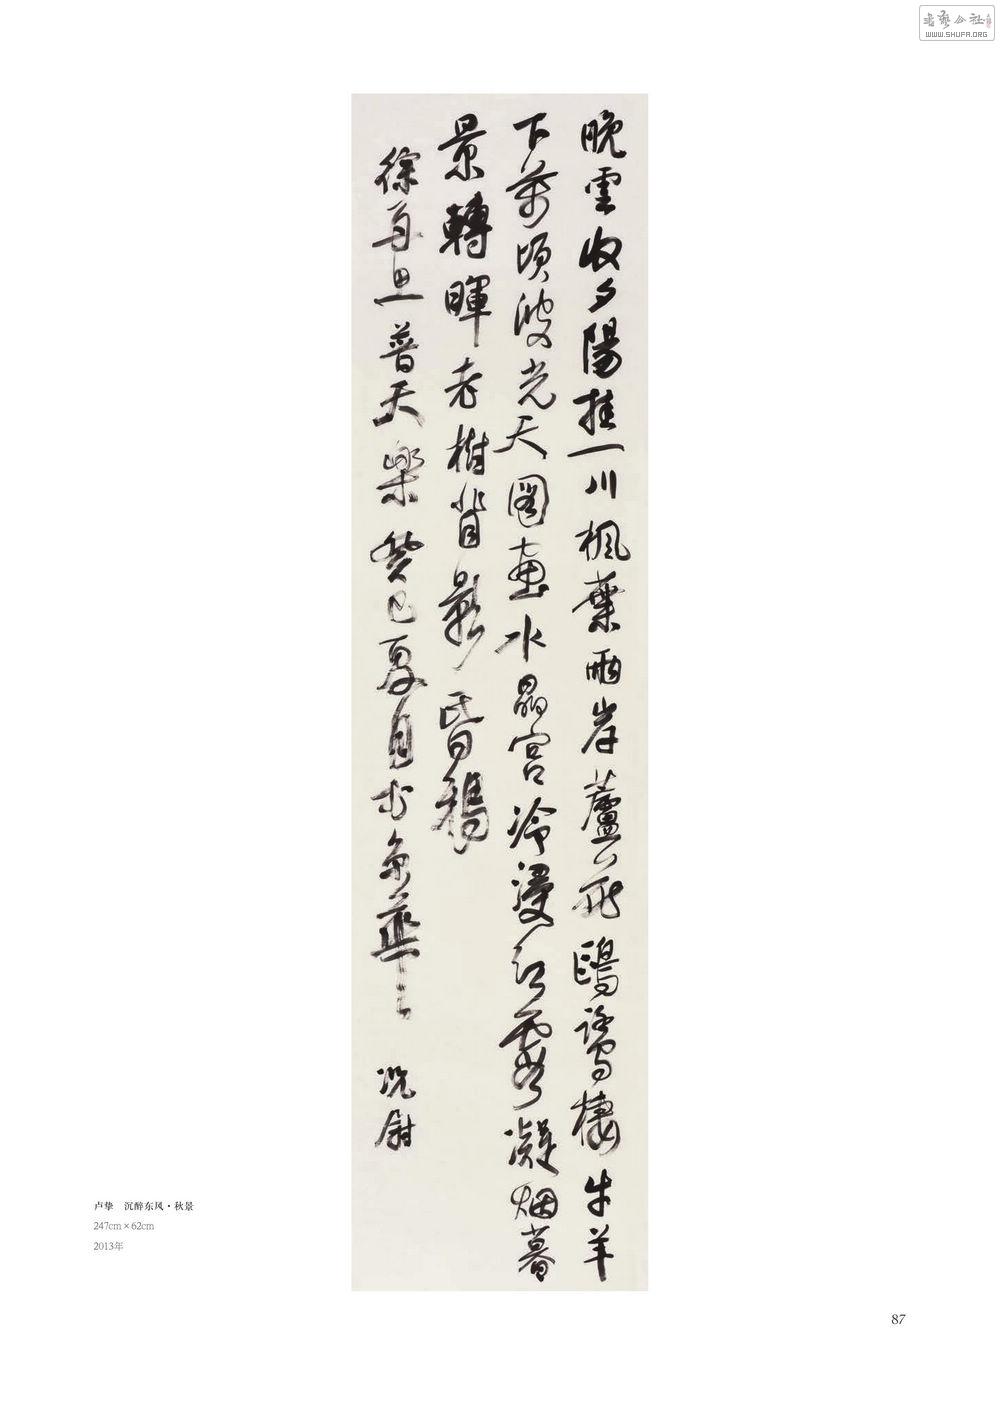 书艺公社
WWW.SHUFA.ORG
晚雲收夕陽挂一川楓葉兩岸蘆花鷗鷺棲牛羊
下萬頃波光天圖畫水晶宮冷浸紅霞凝烟暮
景轉暉老樹背影昏鴉
徐再思普天樂癸巳夏於京華
卢挚 沉醉东风·秋景
247cm×62cm
2013年
87